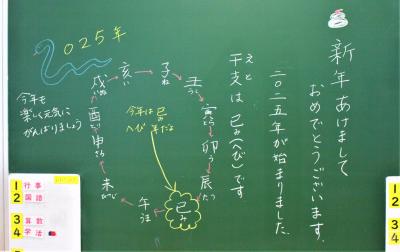 新年あけまして
おめでとうございます.
二〇二五年が始まりました.
えと
干支は 巳み(へび)です
2025年
今年も
楽しく元気に
がんばりましょう
今年は 巳
へび 年だよ
子ね
丑うし
寅とら
卯う
辰たつ
巳み
午うま
未ひつじ
申さる
酉とり
戌いぬ
亥い
1 行事
2 国語
3 算数
4 学活
1
2
3
4